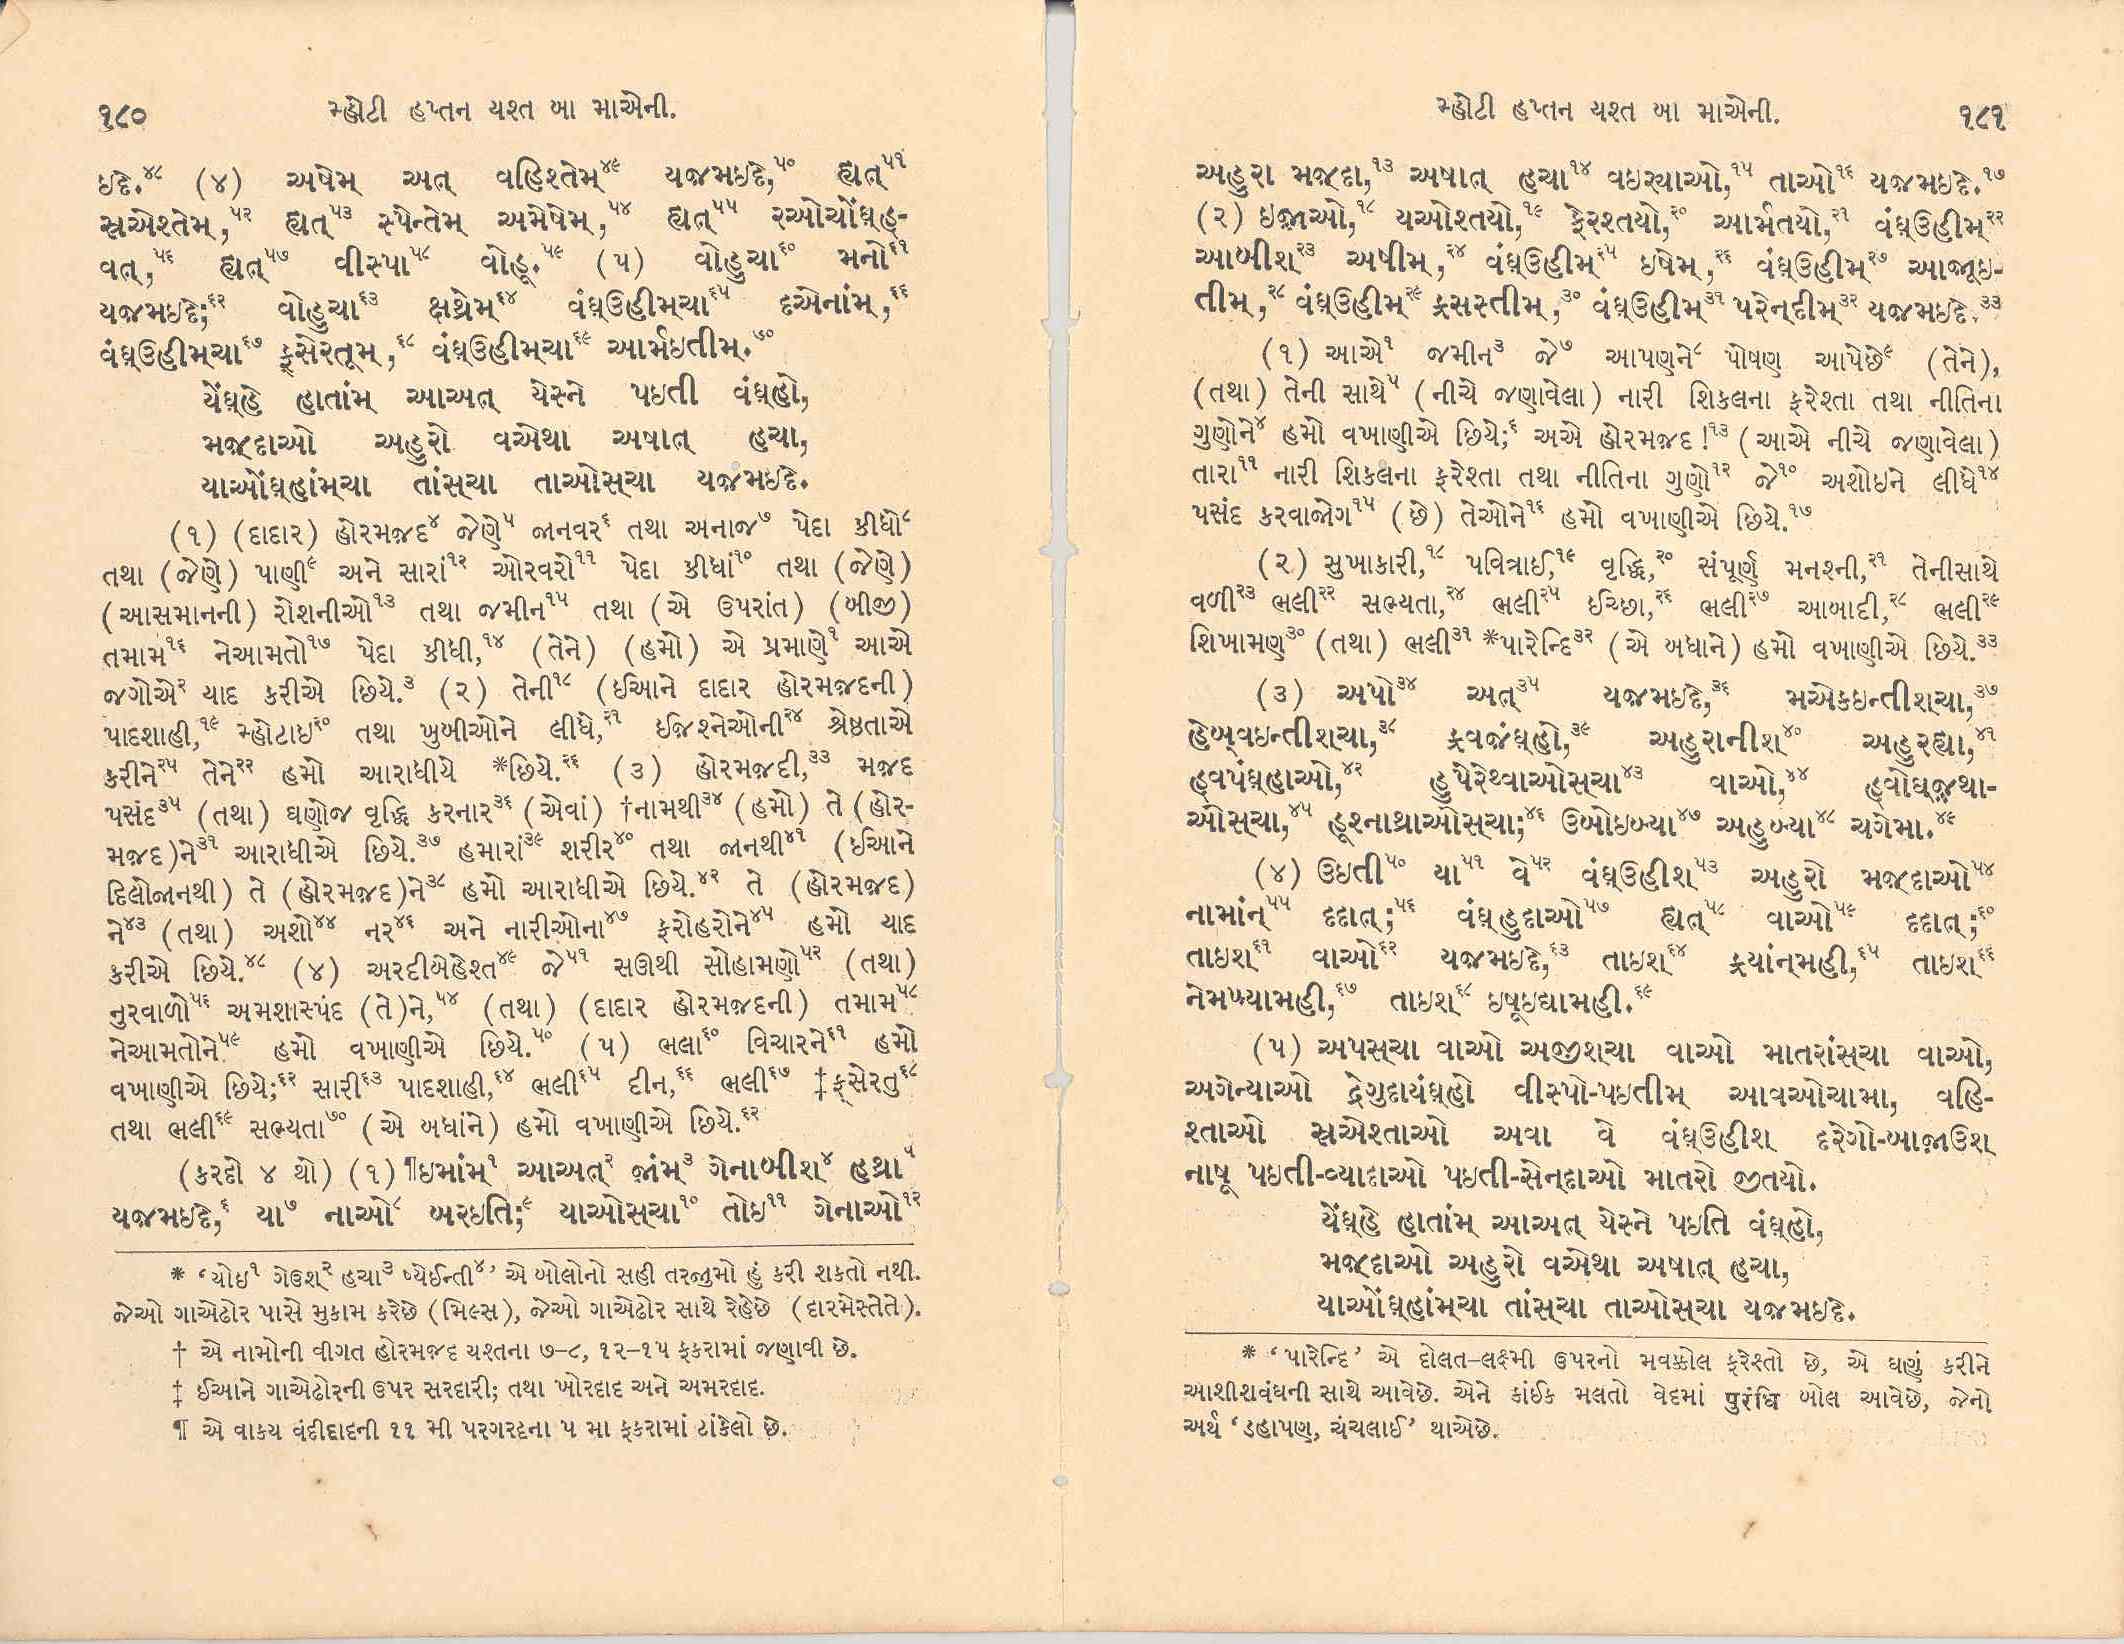 ૧૮૦ મ્હોટી હપ્તન યશ્ત બા માએની.
ઇદે.૪૮ (૪) અષેમ્ અત્ વહિશ્તેમ્૪૯ યજમઇદે,૫૦ હ્યત્૫૧
સ્રએશ્તેમ્,૫૨ હ્યત્૫૩ સ્પેન્તેમ્ અમેષેમ્,૫૪ હ્યત્૫૫ રઓચોંઘ્હ-
વત્,૫૬ હ્યત્૫૭ વીસ્પા૫૮ વોહૂ.૫૯ (૫) વોહુચા૬૦ મનો૬૧
યજમઇદે;૬૨ વોહુચા૬૩ ક્ષથ્રેમ્૬૪ વંઘ્ઉહીમ્ચા૬૫ દએનાંમ્,૬૬
વંઘ્ઉહીમ્ચા૬૭ ફ્સેરતૂમ્,૬૮ વંઘ્ઉહીમ્ચા૬૯ આર્મઇતીમ્.૭૦
યેંઘ્હે હાતાંમ્ આઅત્ યેસ્ને પઇતી વંઘ્હો,
મજ઼્દાઓ અહુરો વએથા અષાત્ હચા,
યાઓંઘ્હાંમ્ચા તાંસ્ચા તાઓસ્ચા યજમઇદે.
(૧) (દાદાર) હોરમજ઼્દ૪ જેણે૫ જાનવર૬ તથા અનાજ૭ પેદા કીધો૮
તથા (જેણે) પાણી૯ અને સારાં૧૨ ઓરવરો૧૧ પેદા કીધાં૧૦ તથા (જેણે)
(આસમાનની) રોશનીઓ૧૩ તથા જમીન૧૫ તથા (એ ઉપરાંત) (બીજી)
તમામ૧૬ નેઆમતો૧૭ પેદા કીધી,૧૪ (તેને) (હમો) એ પ્રમાણે૧ આએ
જગોએ૨ યાદ કરીએ છિયે.૩ (૨) તેની૧૮ (ઈઆને દાદાર હોરમજ઼દની)
પાદશાહી,૧૯ મ્હોટાઇ૨૦ તથા ખુબીઓને લીધે,૨૧ ઇજ઼િશ્નેઓની૨૪ શ્રેષ્ઠતાએ
કરીને૨૫ તેને૨૨ હમો આરાધીયે *છિયે.૨૬ (૩) હોરમજ઼દી,૩૩ મજ઼દ
પસંદ૩૫ (તથા) ઘણોજ વૃદ્ધિ કરનાર૩૬ (એવાં) †નામથી૩૪ (હમો) તે (હોર-
મજ઼દ)ને૩૧ આરાધીએ છિયે.૩૭ હમારાં૩૯ શરીર૪૦ તથા જાનથી૪૧ (ઈઆને
દિલોજાનથી) તે (હોરમજ઼દ)ને૩૮ હમો આરાધીએ છિયે.૪૨ તે (હોરમજ઼દ)
ને૪૩ (તથા) અશો૪૪ નર૪૬ અને નારીઓના૪૭ ફરોહરોને૪૫ હમો યાદ
કરીએ છિયે.૪૮ (૪) અરદીબેહેશ્ત૪૯ જે૫૧ સઊથી સોહામણો૫૨ (તથા)
નુરવાળો૫૬ અમશાસ્પંદ (તે)ને,૫૪ (તથા) (દાદાર હોરમજ઼દની) તમામ૫૮
નેઆમતોને૫૯ હમો વખાણીએ છિયે.૫૦ (૫) ભલા૬૦ વિચારને૬૧ હમો
વખાણીએ છિયે;૬૨ સારી૬૩ પાદશાહી,૬૪ ભલી૬૫ દીન,૬૬ ભલી૬૭ ‡ફ્સેરતુ૬૮
તથા ભલી૬૯ સભ્યતા૭૦ (એ બધાંને) હમો વખાણીએ છિયે.૬૨
(કરદો ૪ થો) (૧) ¶ઇમાંમ્૧ આઅત્૨ જ઼ાંમ્૩ ગેનાબીશ્૪ હથ્રા૫
યજમઇદે,૬ યા૭ નાઓ૮ બરઇતિ;૯ યાઓસ્ચા૧૦ તોઇ૧૧ ગેનાઓ૧૨
* ‘યોઇ૧ ગેઉશ્૨ હચા૩ ષ્યેઈન્તી૪’ એ બોલોનો સહી તરજુમો હું કરી શકતો નથી.
જેઓ ગાએઢોર પાસે મુકામ કરેછે (મિલ્સ), જેઓ ગાએઢોર સાથે રેહેછે (દારમેસ્તેતે).
† એ નામોની વીગત હોરમજ઼દ યશ્તના ૭–૮, ૧૨–૧૫ ફકરામાં જણાવી છે.
‡ ઈઆને ગાએઢોરની ઉપર સરદારી; તથા ખોરદાદ અને અમરદાદ.
¶ એ વાકય વંદીદાદની ૧૧ મી પરગરદના ૫ મા ફકરામાં ટાંકેલો છે.
મ્હોટી હપ્તન યશ્ત બા માએની. ૧૮૧
અહુરા મજ઼્દા,૧૩ અષાત્ હચા૧૪ વઇર્યાઓ,૧૫ તાઓ૧૬ યજમઇદે.૧૭
(૨) ઇજ઼ાઓ,૧૮ યઓશ્તયો,૧૯ ફેરશ્તયો,૨૦ આર્મતયો,૨૧ વંઘ્ઉહીમ્૨૨
આબીશ્૨૩ અષીમ્,૨૪ વંઘ્ઉહીમ્૨૫ ઇષેમ્,૨૬ વંઘ્ઉહીમ્૨૭ આજ઼ૂઇ-
તીમ્,૨૮ વંઘ્ઉહીમ્૨૯ ફ્રસસ્તીમ્,૩૦ વંઘ્ઉહીમ્૩૧ પરેન્દીમ્૩૨ યજમઇદે.૩૩
(૧) આએ૧ જમીન૩ જે૭ આપણને૮ પોષણ આપેછે૯ (તેને),
(તથા) તેની સાથે૫ (નીચે જણાવેલા) નારી શિકલના ફરેશ્તા તથા નીતિના
ગુણોને૪ હમો વખાણીએ છિયે;૬ અએ હોરમજ઼દ!૧૩ (આએ નીચે જણાવેલા)
તારા૧૧ નારી શિકલના ફરેશ્તા તથા નીતિના ગુણો૧૨ જે૧૦ અશોઇને લીધે૧૪
પસંદ કરવાજોગ૧૫ (છે) તેઓને૧૬ હમો વખાણીએ છિયે.૧૭
(૨) સુખાકારી,૧૮ પવિત્રાઈ,૧૯ વૃદ્ધિ,૨૦ સંપૂર્ણ મનશ્ની,૨૧ તેનીસાથે
વળી૨૩ ભલી૨૨ સભ્યતા,૨૪ ભલી૨૫ ઈચ્છા,૨૬ ભલી૨૭ આબાદી,૨૮ ભલી૨૯
શિખામણ૩૦ (તથા) ભલી૩૧ *પારેન્દિ૩૨ (એ બધાને) હમો વખાણીએ છિયે.૩૩
(૩) અપો૩૪ અત્૩૫ યજમઇદે,૩૬ મએકઇન્તીશ્ચા,૩૭
હેબ્વઇન્તીશ્ચા,૩૮ ફ્રવજંઘ્હો,૩૯ અહુરાનીશ્૪૦ અહુરહ્યા,૪૧
હ્વપંઘ્હાઓ,૪૨ હુપેરેથ્વાઓસ્ચા૪૩ વાઓ,૪૪ હ્વોઘ્જ઼થા-
ઓસ્ચા,૪૫ હૂશ્નાથ્રાઓસ્ચા;૪૬ ઉબોઇબ્યા૪૭ અહુબ્યા૪૮ ચગેમા.૪૯
(૪) ઉઇતી૫૦ યા૫૧ વે૫૨ વંઘ્ઉહીશ્૫૩ અહુરો મજ઼્દાઓ૫૪
નામાંન્૫૫ દદાત્;૫૬ વંઘ્હુદાઓ૫૭ હ્યત્૫૮ વાઓ૫૯ દદાત્;૬૦
તાઇશ્૬૧ વાઓ૬૨ યજમઇદે,૬૩ તાઇશ્૬૪ ફ્રયાંન્મહી,૬૫ તાઇશ્૬૬
નેમખ્યામહી,૬૭ તાઇશ્૬૮ ઇષૂઇદ્યામહી.૬૯
(૫) અપસ્ચા વાઓ અજીશ્ચા વાઓ માતરાંસ્ચા વાઓ,
અગેન્યાઓ દ્રેગુદાયંઘ્હો વીસ્પો-પઇતીમ્ આવઓચામા, વહિ-
શ્તાઓ સ્રએશ્તાઓ અવા વે વંઘ્ઉહીશ્ દરેગો-બાજ઼ાઉશ્
નાષૂ પઇતી-વ્યાદાઓ પઇતી-સેન્દાઓ માતરો જીતયો.
યેંઘ્હે હાતાંમ્ આઅત્ યેસ્ને પઇતિ વંઘ્હો,
મજ઼્દાઓ અહુરો વએથા અષાત્ હચા,
યાઓંઘ્હાંમ્ચા તાંસ્ચા તાઓસ્ચા યજમઇદે.
* ‘પારેન્દિ’ એ દોલત–લક્ષ્મી ઉપરનો મવક્કેલ ફરેશ્તો છે, એ ઘણું કરીને
આશીશવંઘની સાથે આવેછે. એને કાંઈક મલતો વેદમાં પુરંધિ બોલ આવેછે, જેનો
અર્થ ‘ડહાપણ, ચંચલાઈ’ થાએછે.